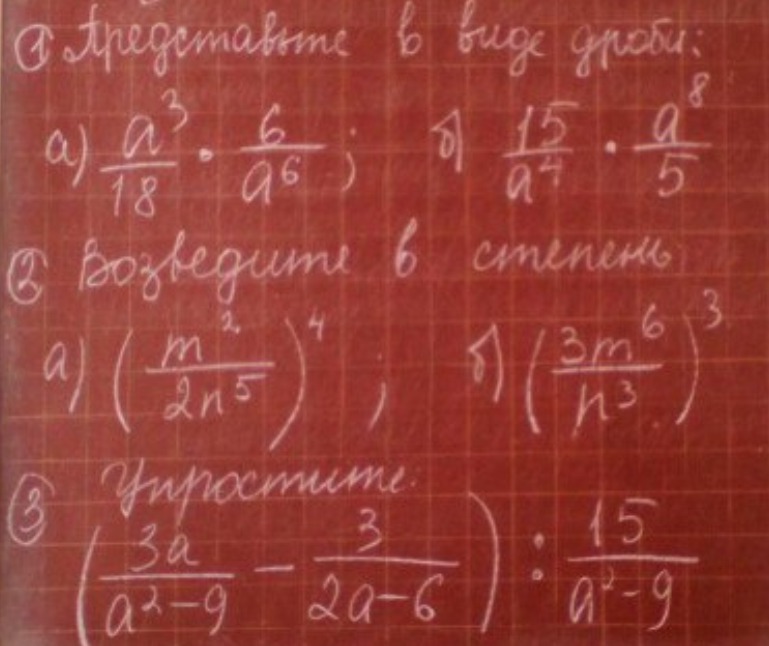 ① Представьте в виде дроби:
а) a³/18 · 6/a⁶ ; б) 15/a⁴ · a⁸/5
② Возведите в степень
а) (m²/2n⁵)⁴ ; б) (3m⁶/n³)³
③ Упростите:
(3a/a²-9 − 3/2a-6) : 15/a²-9